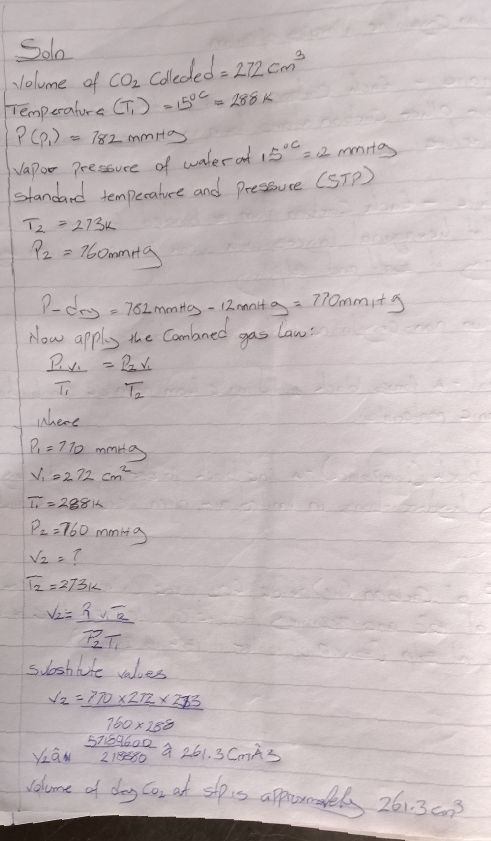 Soln
Volume of CO2 Collected = 272 cm3
Temperature (T1) = 15°C = 288K
P(P1) = 782 mmHg
Vapor pressure of water at 15°C = 12 mmHg
Standard temperature and pressure (STP)
T2 = 273K
P2 = 760mmHg
P-dry = 782mmHg - 12mmHg = 770mmHg
Now apply the Combned gas law:
P1V1 = P2V2
T1 T2
where
P1 = 770 mmHg
V1 = 272 cm2
T1 = 288K
P2 = 760 mmHg
V2 = ?
T2 = 273K
V2 = P1V1T2
P2T1
substitute values
V2 = 770 x 272 x 273
760 x 288
218880 â 261.3 CmÂ3
Volume of dry CO2 at stp is approximately 261.3 cm3